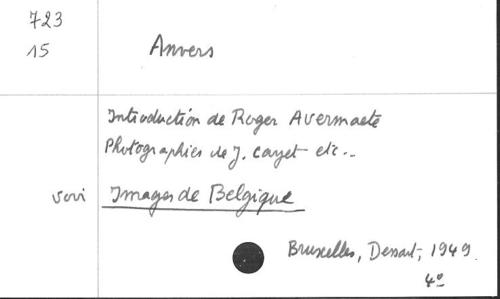 723
15
Anvers
Introduction de Roger Avermaete
Photographies de J. Cayet etc...
Images de Belgique
Bruxelles, Dessart, 1949.
4º